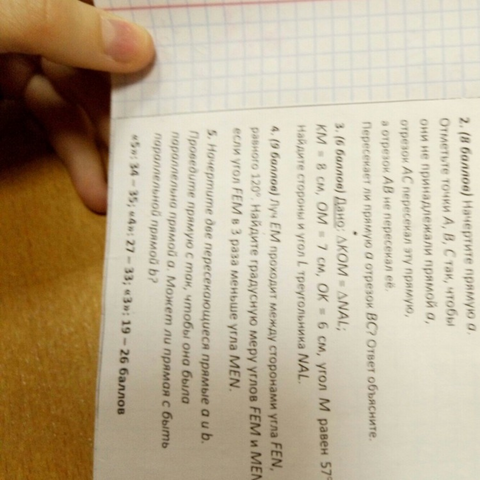 2. (8 баллов) Начертите прямую a.
Отметьте точки A, B, C так, чтобы
они не принадлежали прямой a,
отрезок AC пересекал эту прямую,
а отрезок AB не пересекал её.
Пересекает ли прямую a отрезок BC? Ответ объясните.
3. (6 баллов) Дано: ΔKOM = ΔNAL;
KM = 8 см, OM = 7 см, OK = 6 см, угол M равен 57°
Найдите стороны и угол L треугольника NAL.
4. (9 баллов) Луч EM проходит между сторонами угла FEN,
равного 120°. Найдите градусную меру углов FEM и MEN
если угол FEM в 3 раза меньше угла MEN.
5. Начертите две пересекающиеся прямые a и b.
Проведите прямую c так, чтобы она была
параллельно прямой a. Может ли прямая c быть
параллельной прямой b?
«5»: 34 – 35; «4»: 27 – 33; «3»: 19 – 26 баллов